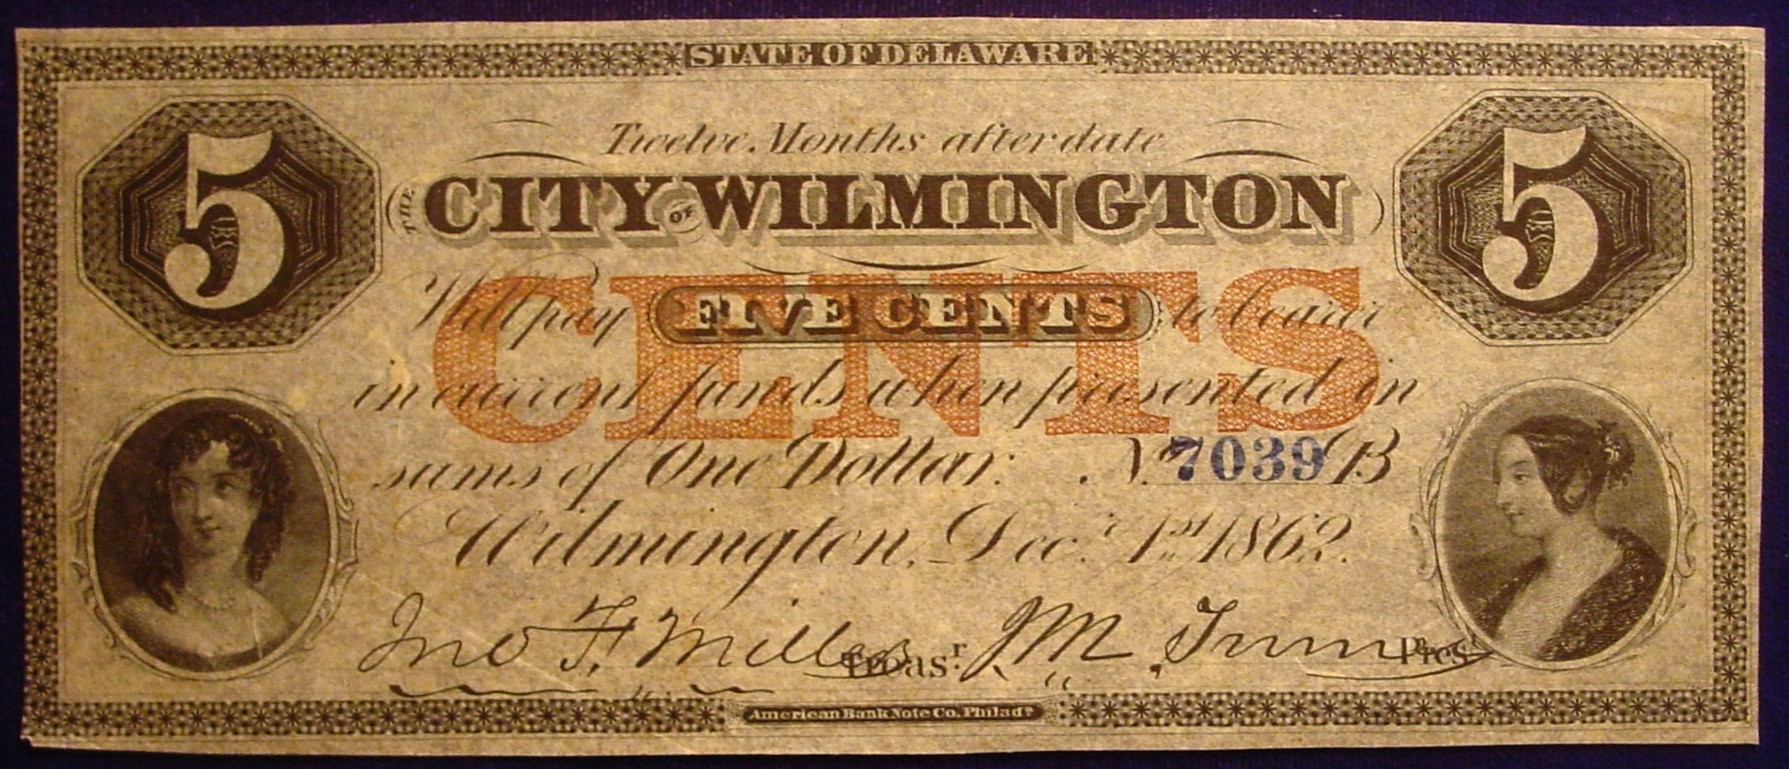 STATE OF DELAWARE
5 5
Twelve Months after date
THE CITY OF WILMINGTON
Will pay FIVE CENTS to bearer
CENTS
in current funds when presented in
sums of One Dollar. No. 7039 B
Wilmington, Dec. 1st, 1862.
Jno F. Miller Treasr. J M. Pres
American Bank Note Co. Philada